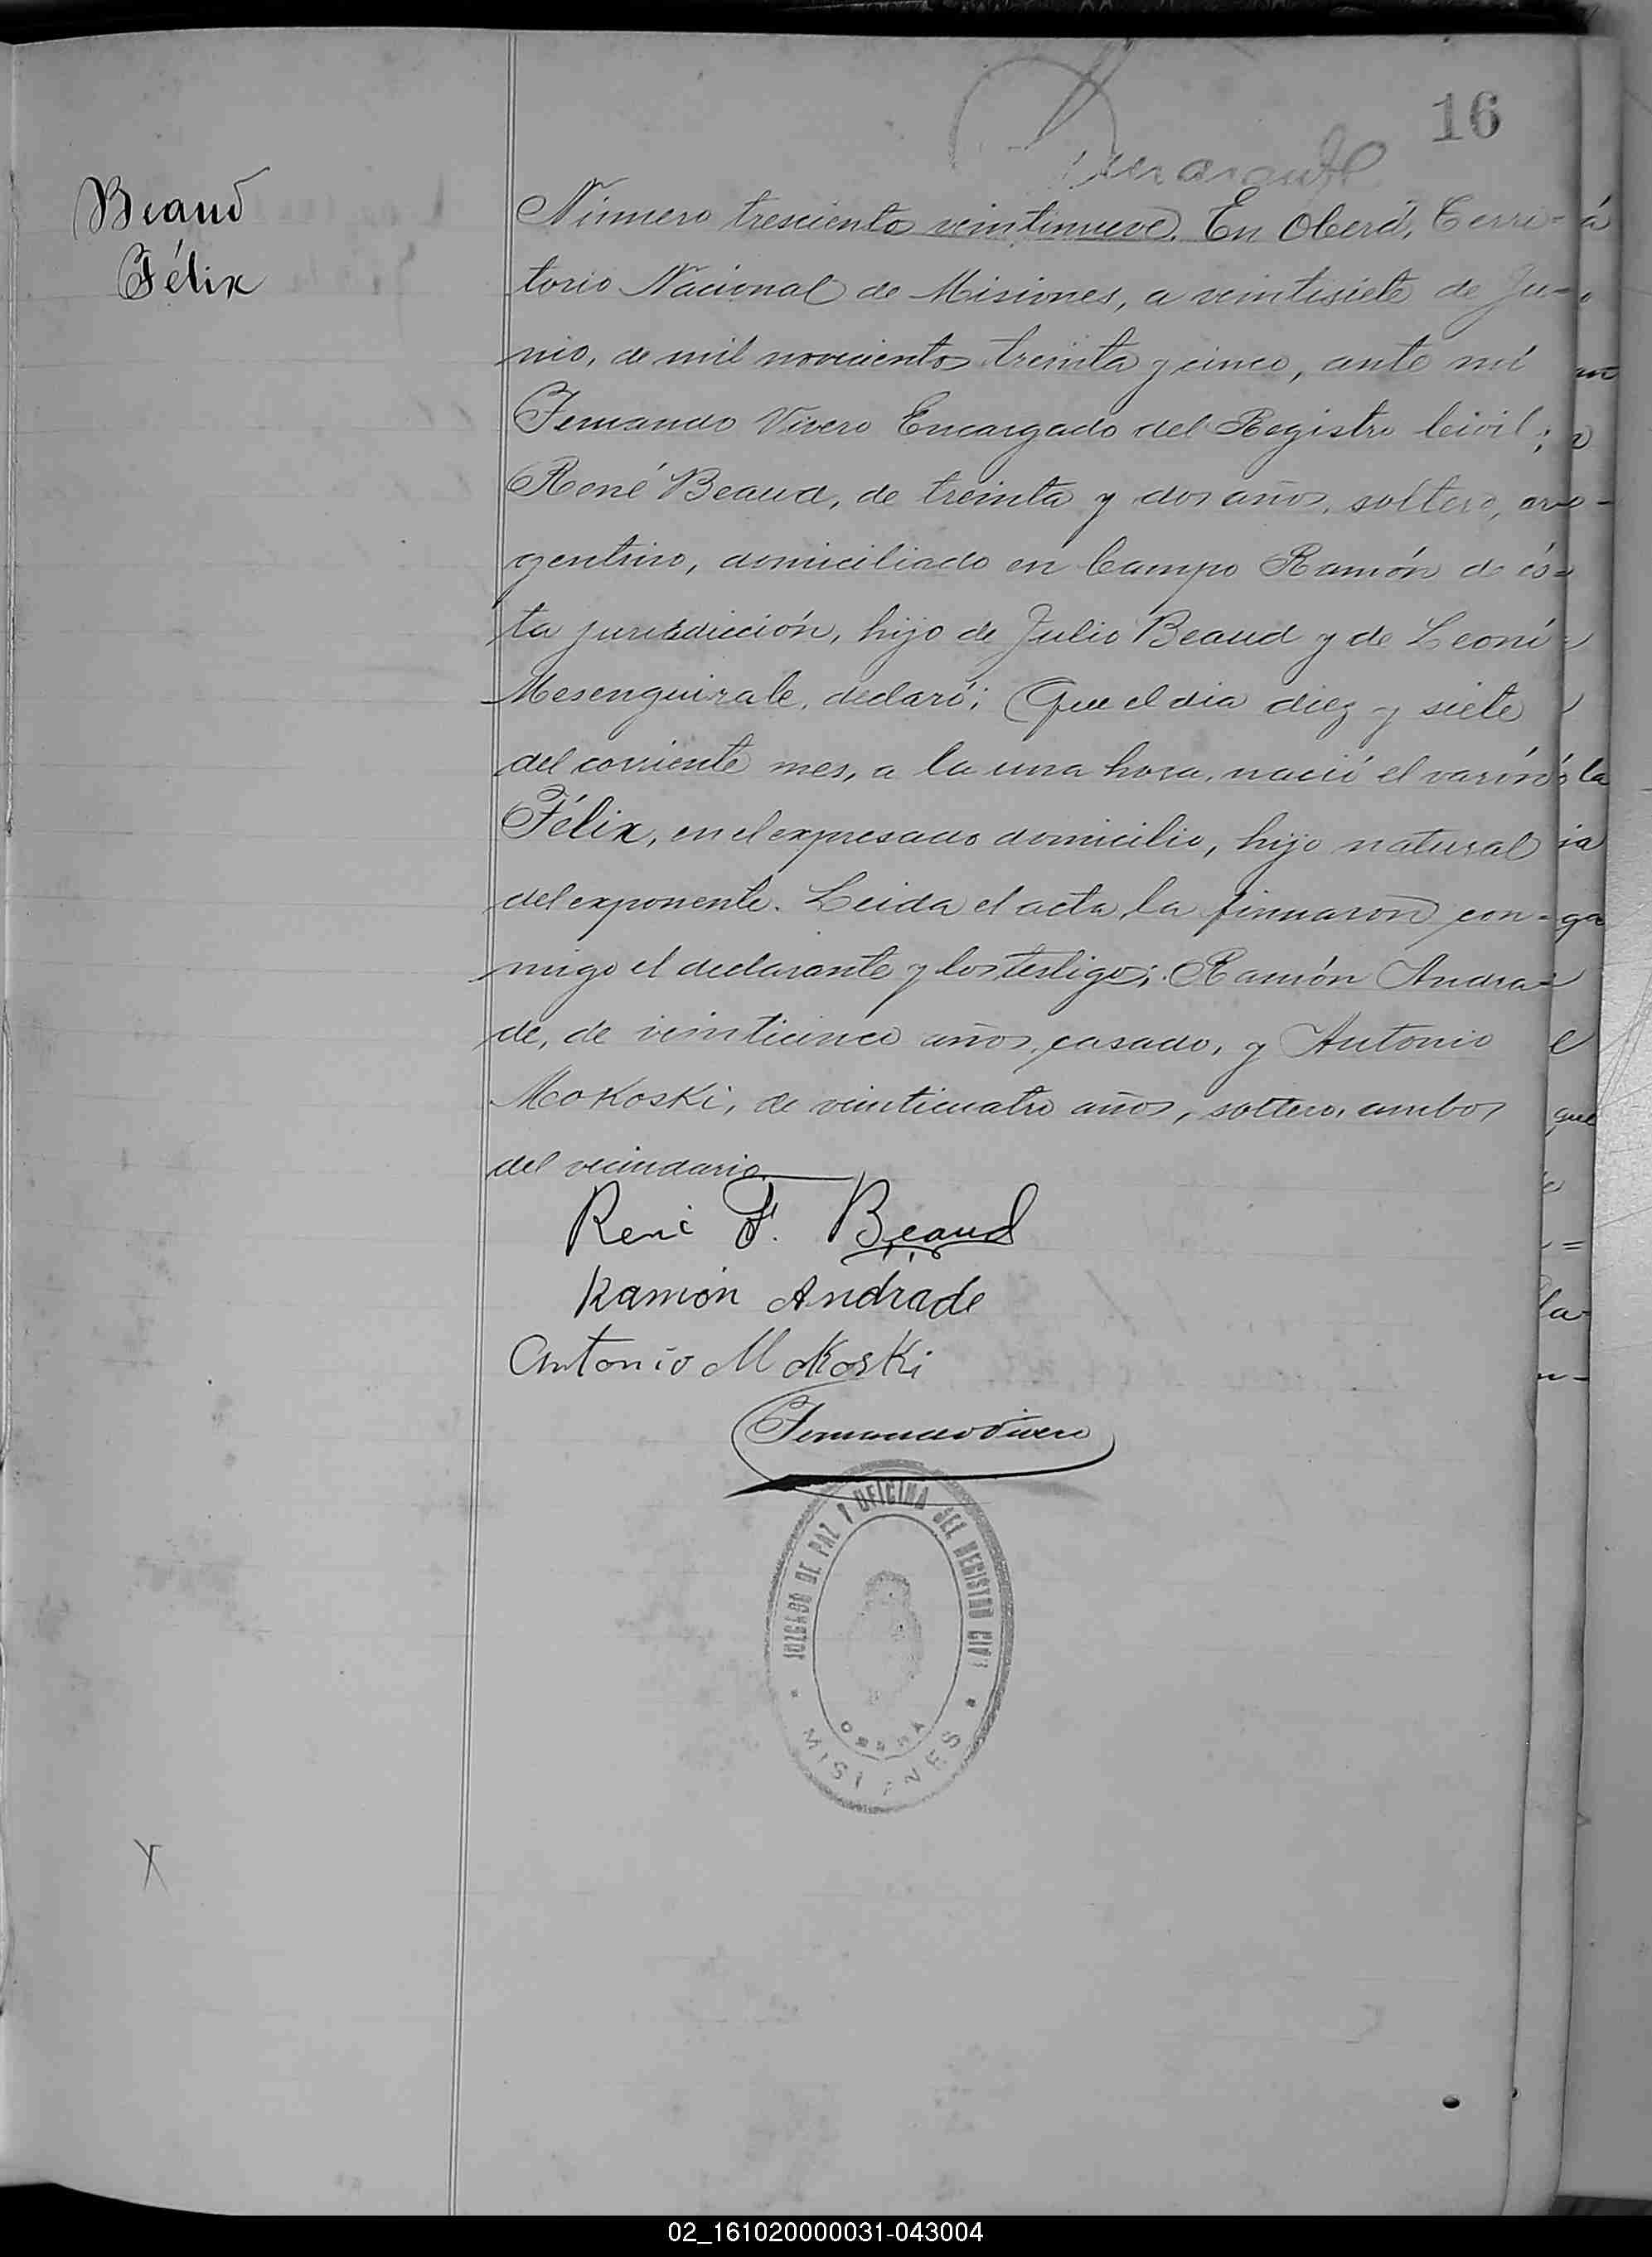 16
Beaud
Félix
Número trescientos veintinueve. En Oberá, Terri=
torio Nacional de Misiones, a veintisiete de Ju=
nio, de mil novecientos treinta y cinco, ante mí
Fernando Vivero Encargado del Registro Civil;
René Beaud, de treinta y dos años, soltero, ar=
gentino, domiciliado en Campo Ramón de és=
ta jurisdicción, hijo de Julio Beaud y de Leoní
Mesenguirale, declaró: Que el día diez y siete
del corriente mes, a la una hora, nació el varón
Félix, en el expresado domicilio, hijo natural
del exponente. Leida el acta, la firmaron con=
migo el declarante y los testigos: Ramón Andra=
de, de veinticinco años, casado, y Antonio
Mokoski, de veinticuatro años, soltero, ambos
del vecindario.
René F. Beaud
Ramón Andrade
Antonio Mokoski
Fernando Vivero
JUZGADO DE PAZ Y OFICINA DEL REGISTRO CIVIL
OBERÁ
MISIONES
X
02_161020000031-043004